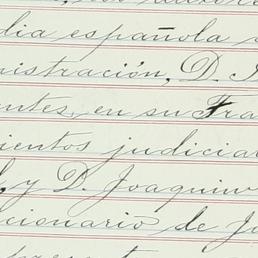 dia española
nistración, D.
entes, en su Fra
ientos judicia
y D. Joaquin
cionario de Ju